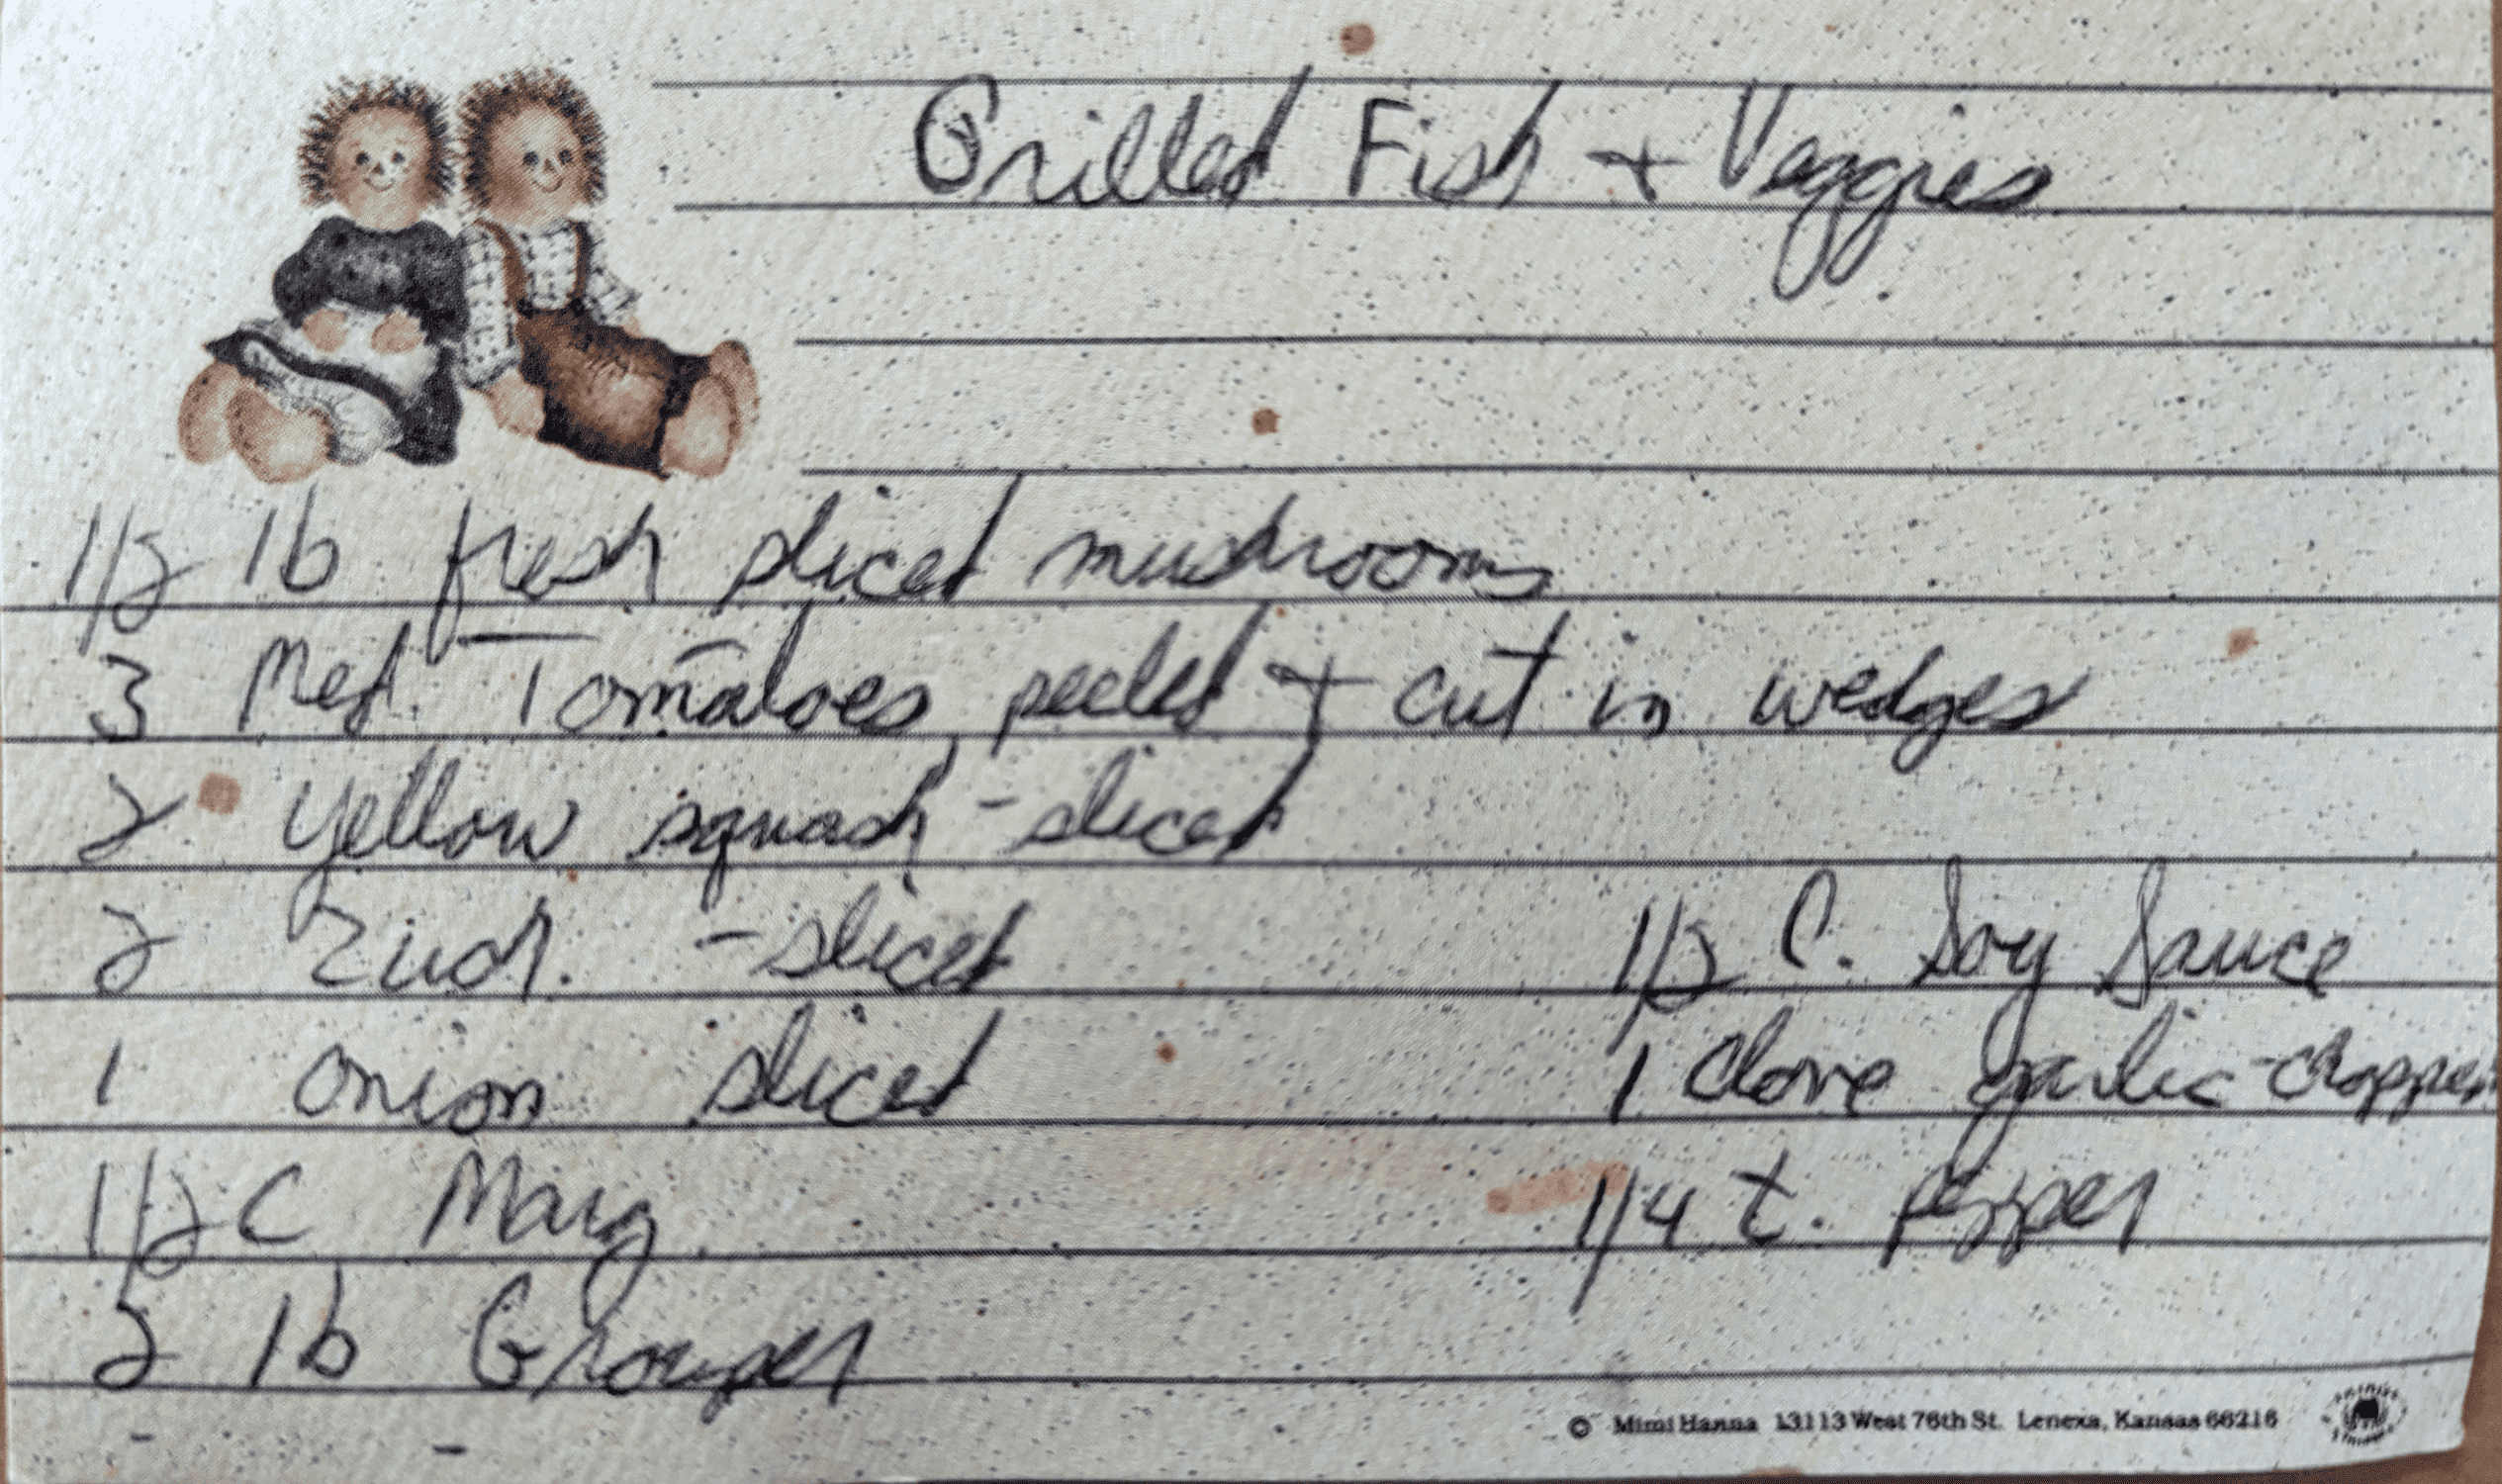 Grilled Fish + Veggies
1/2 lb fresh sliced mushrooms
3 Med. Tomatoes peeled + cut in wedges
2 yellow squash - sliced
2 Zuch. - sliced
1/2 C. Soy Sauce
1 onion sliced
1 clove garlic - chopped
1/2 C Marg
1/4 t. pepper
2 lb Grouper
© Mimi Hanna 13113 West 76th St. Lenexa, Kansas 66216